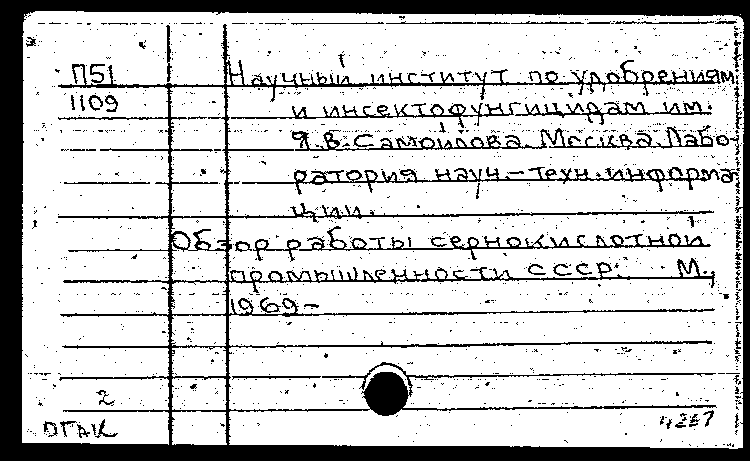 П51
1109
Научный институт по удобрениям
и инсектофунгицидам им.
Я.В. Самойлова. Москва. Лабо-
ратория науч.-техн. информа-
ции.
Обзор работы сернокислотной
промышленности СССР. М.,
1969-
2
ОГАК